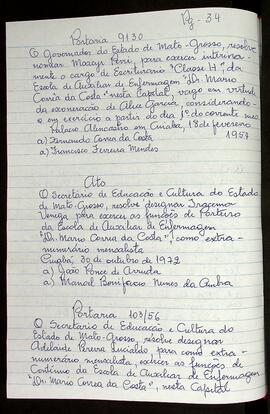 Pg - 34
Portaria 9130
O Governador do Estado de Mato-Grosso, resolve
nomear Moacyr Péri, para exercer interina-
mente o cargo de Escriturário "Classe H" da
Escola de Auxiliar de Enfermagem "Dr. Mario
Corrêa da Costa" nesta Capital, vago em virtude
da exoneração de Alice Garcia, considerando-
o em exercício a partir do dia 1º do corrente mês
Palacio Alencastro em Cuiabá, 1 de fevereiro
1957
a) Fernando Corrêa da Costa
a) Francisco Ferreira Mendes
Ato
O Secretário de Educação e Cultura do Estado
de Mato-Grosso, resolve designar Iracema
para exercer as funções de Porteiro
da Escola de Auxiliar de Enfermagem
"Dr. Mario Correa da Costa", como extra-
numerário mensalista
Cuiabá, 30 de outubro de 1972
a) João Ponce de Arruda
a) Manoel Bonifacio Nunes da Cunha
Portaria 103/56
O Secretario de Educação e Cultura do
Estado de Mato-Grosso, resolve designar
Adelaide Pereira para como extra-
numerário mensalista, exercer as funções de
Contínuo da Escola de Auxiliar de Enfermagem
"Dr. Mario Correa da Costa", nesta Capital